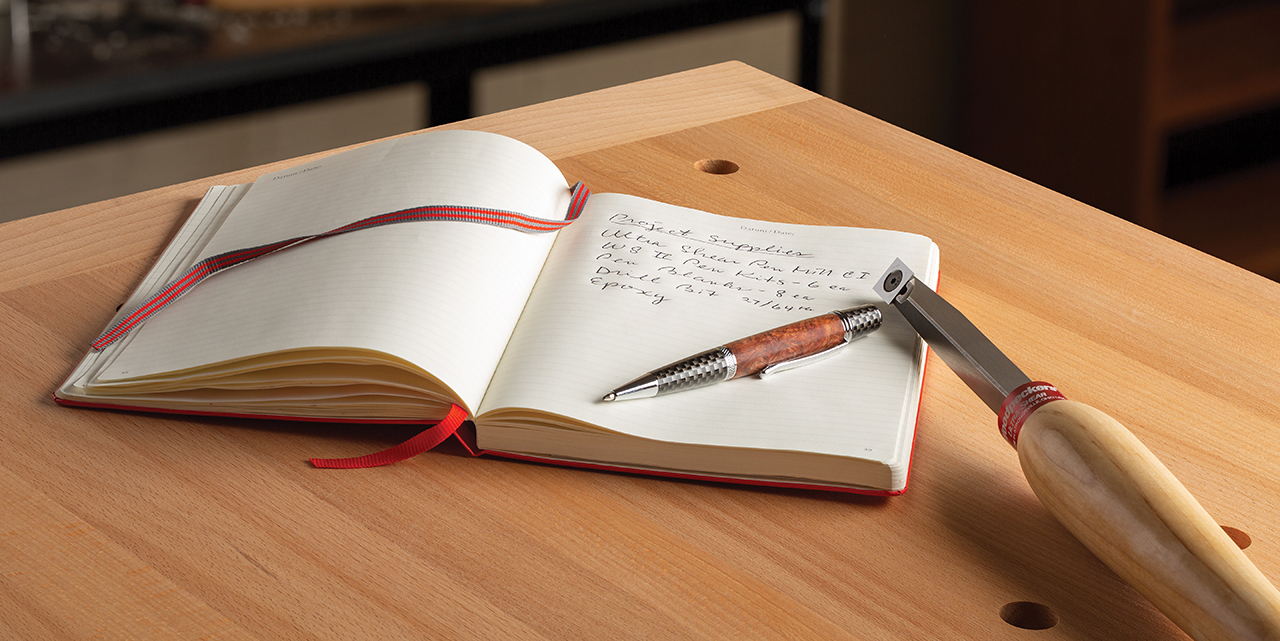 Datum/Date:
Datum/Date:
Project Supplies
Ultra Shear Pen Mill CI
W8 II Pen Kits - 6 ea
Pen Blanks - 8 ea
Drill Bit 27/64ths
Epoxy
SHEAR